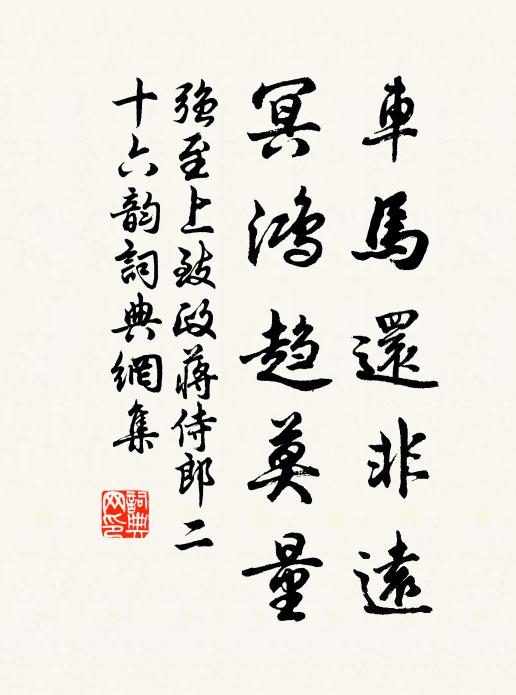 車馬還非遠
冥鴻趨莫量
強至上致政蔣侍郎二
十六韵詞典網集
詞典网印